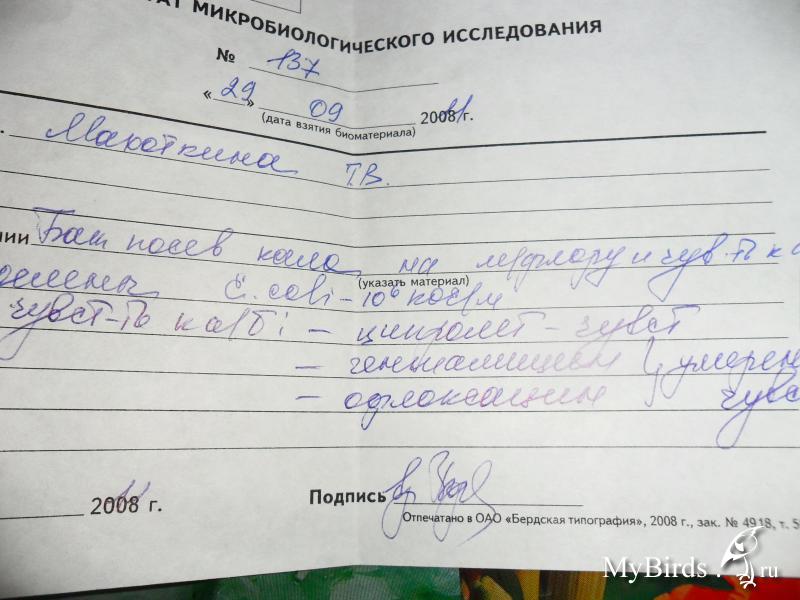 ТАТ МИКРОБИОЛОГИЧЕСКОГО ИССЛЕДОВАНИЯ
№ 137
« 29 » 09 200811 г.
(дата взятия биоматериала)
Макоткина Т.В.
нии Бак посев кала на м/флору и чув-ть к а
(указать материал)
делены E. coli - 10⁶ КОЕ/м
чувст-ть к а/б:
– ципролет – чувст
– гентамицин } умерен
– офлоксацин чувс
2008 г.
Подпись
Отпечатано в ОАО «Бердская типография», 2008 г., зак. № 4918, т. 5
MyBirds.ru